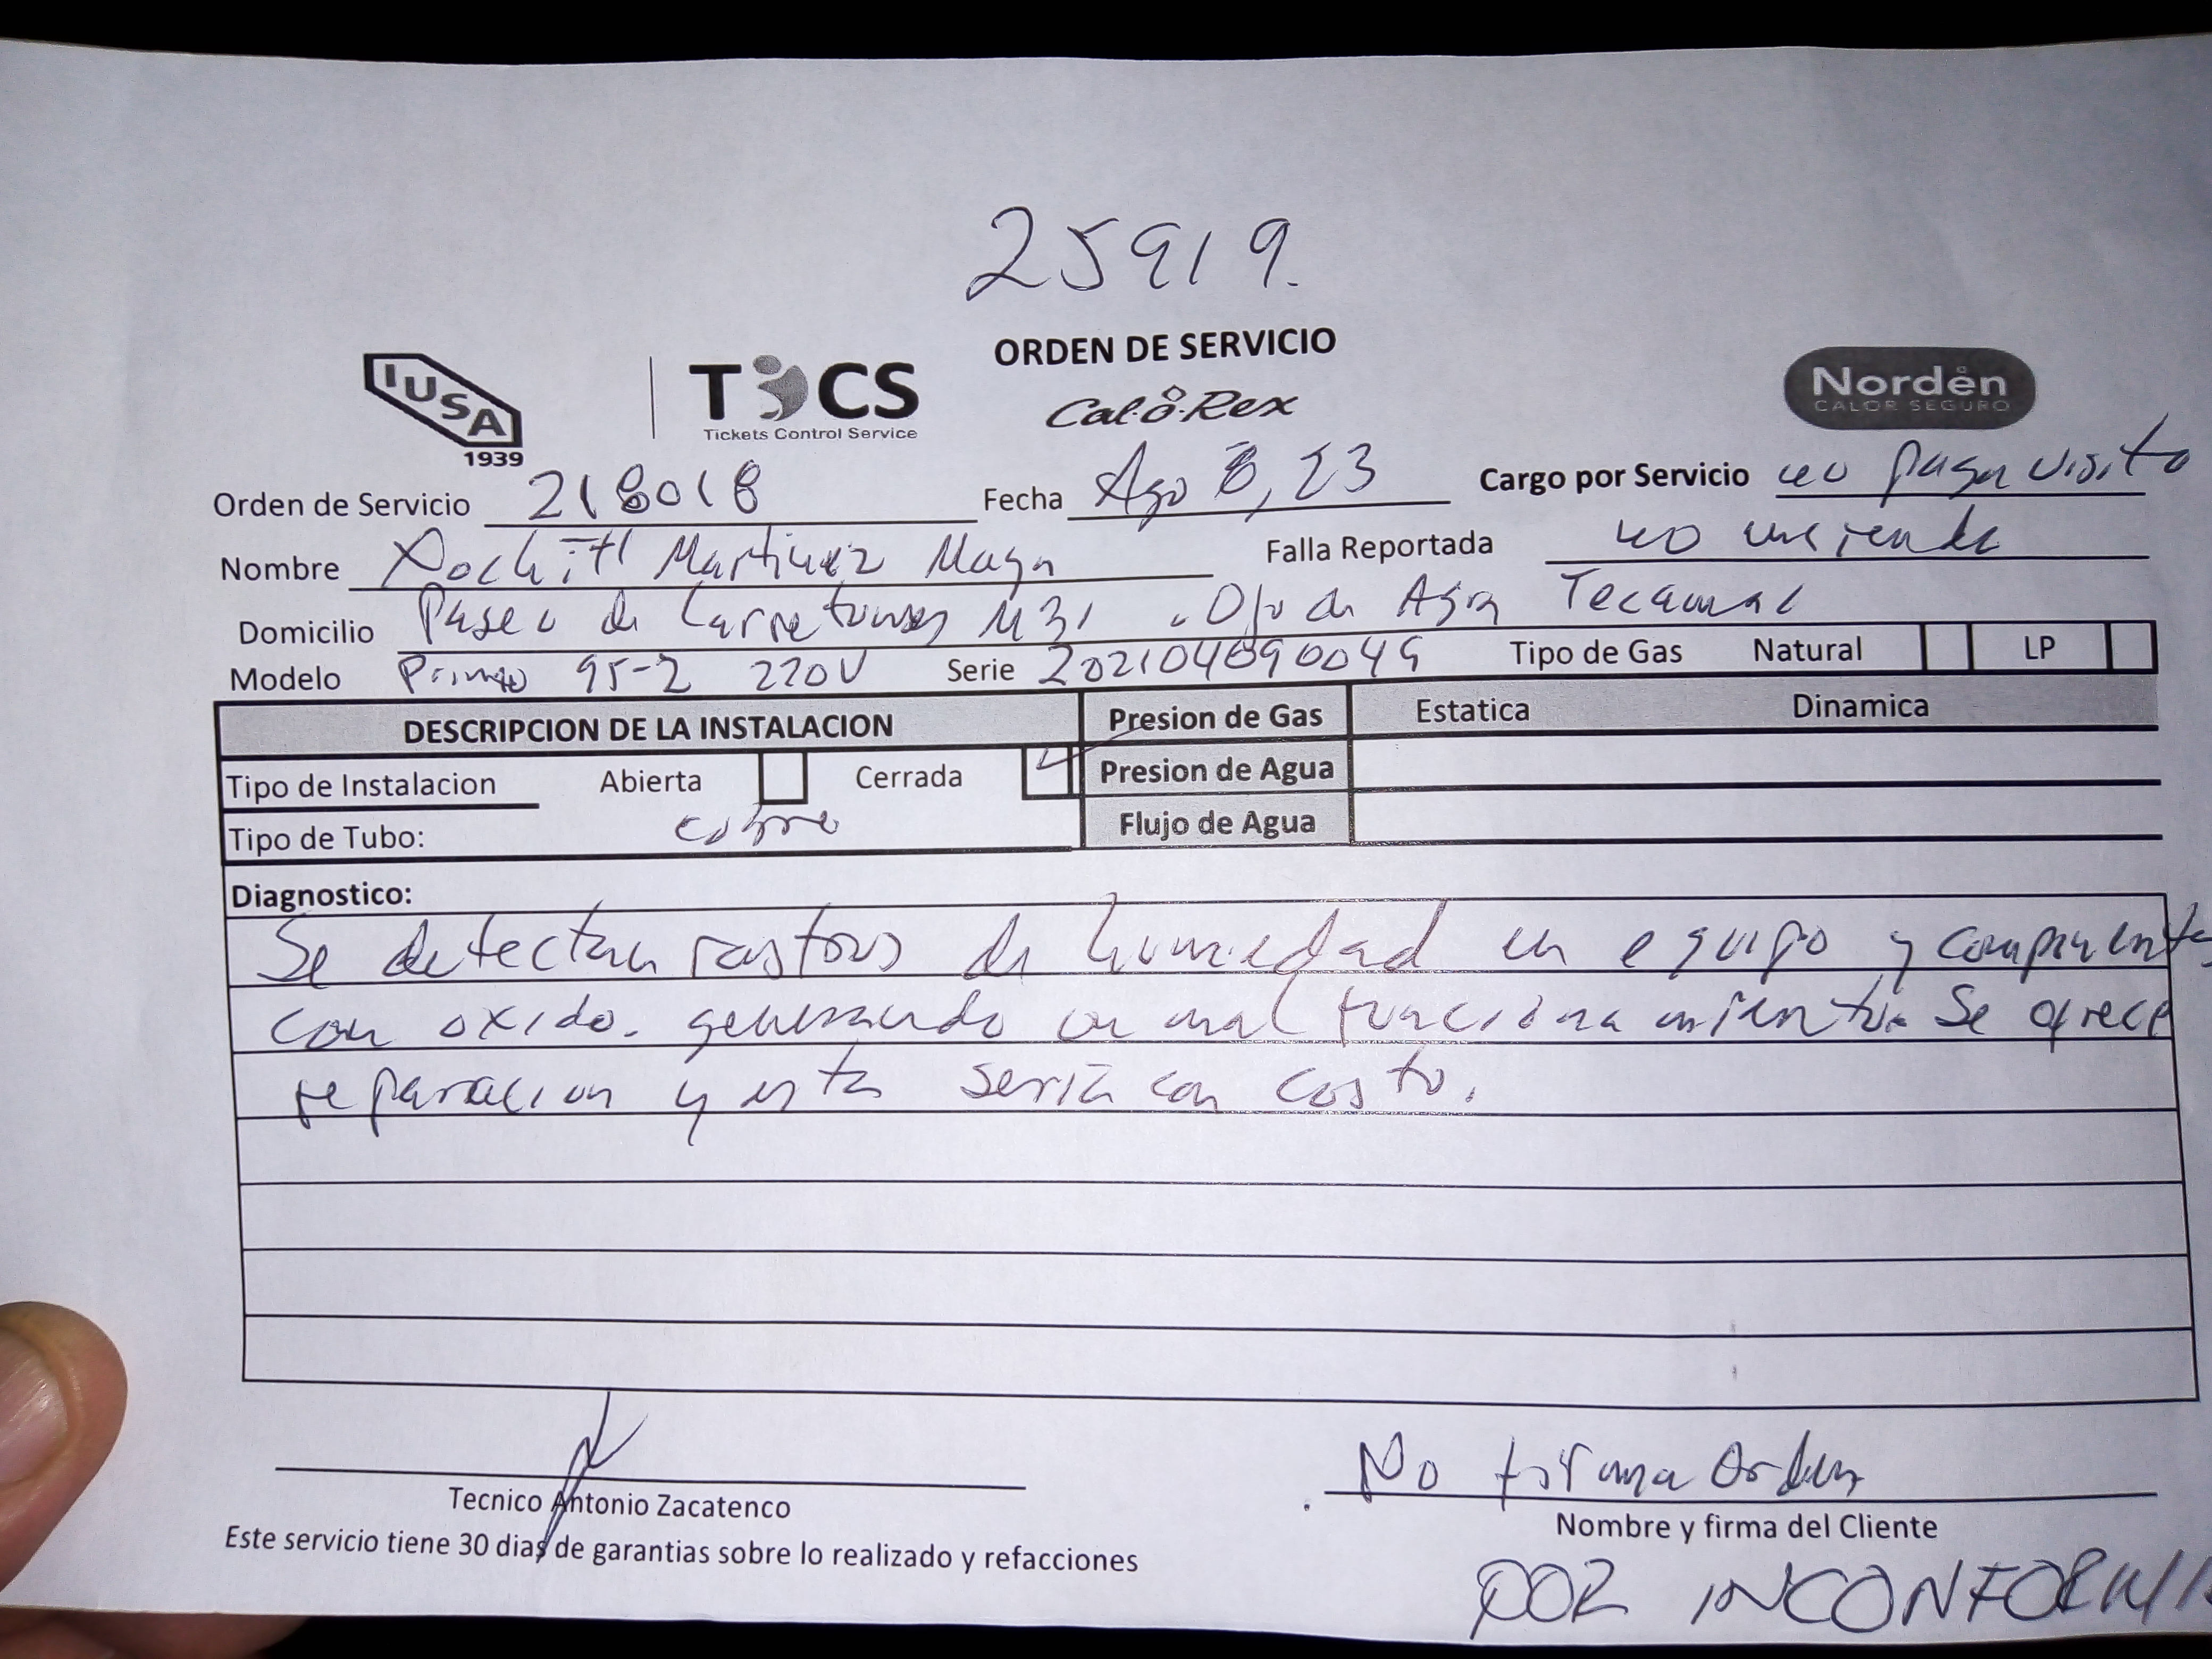 25919.
ORDEN DE SERVICIO
IUSA
1939
TCS
Tickets Control Service
Cal-o-Rex
Norden
CALOR SEGURO
Orden de Servicio 218018 Fecha Ago 8, 23 Cargo por Servicio no paga visita
Nombre Xochitl Martinez Maya Falla Reportada no enciende
Domicilio Paseo de Carretones M31 . Ojo de Agua Tecamac
Modelo Primo 95-2 220V Serie Tipo de Gas Natural LP
DESCRIPCION DE LA INSTALACION Presion de Gas Estatica Dinamica
Tipo de Instalacion Abierta Cerrada Presion de Agua
Tipo de Tubo: cobre Flujo de Agua
Diagnostico:
Se detectan rastros de humedad en equipo y componentes
con oxido. generando un mal funcionamiento. Se ofrece
reparacion y esta seria con costo.
No firma Orden
Tecnico Antonio Zacatenco
Nombre y firma del Cliente
Este servicio tiene 30 dias de garantias sobre lo realizado y refacciones
POR